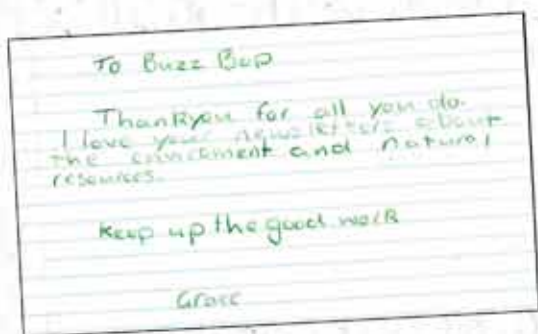 To Buzz Bop
Thankyou for all you do.
I love your newsletters about
the enviroment and natural
resources.
Keep up the good work
Grace